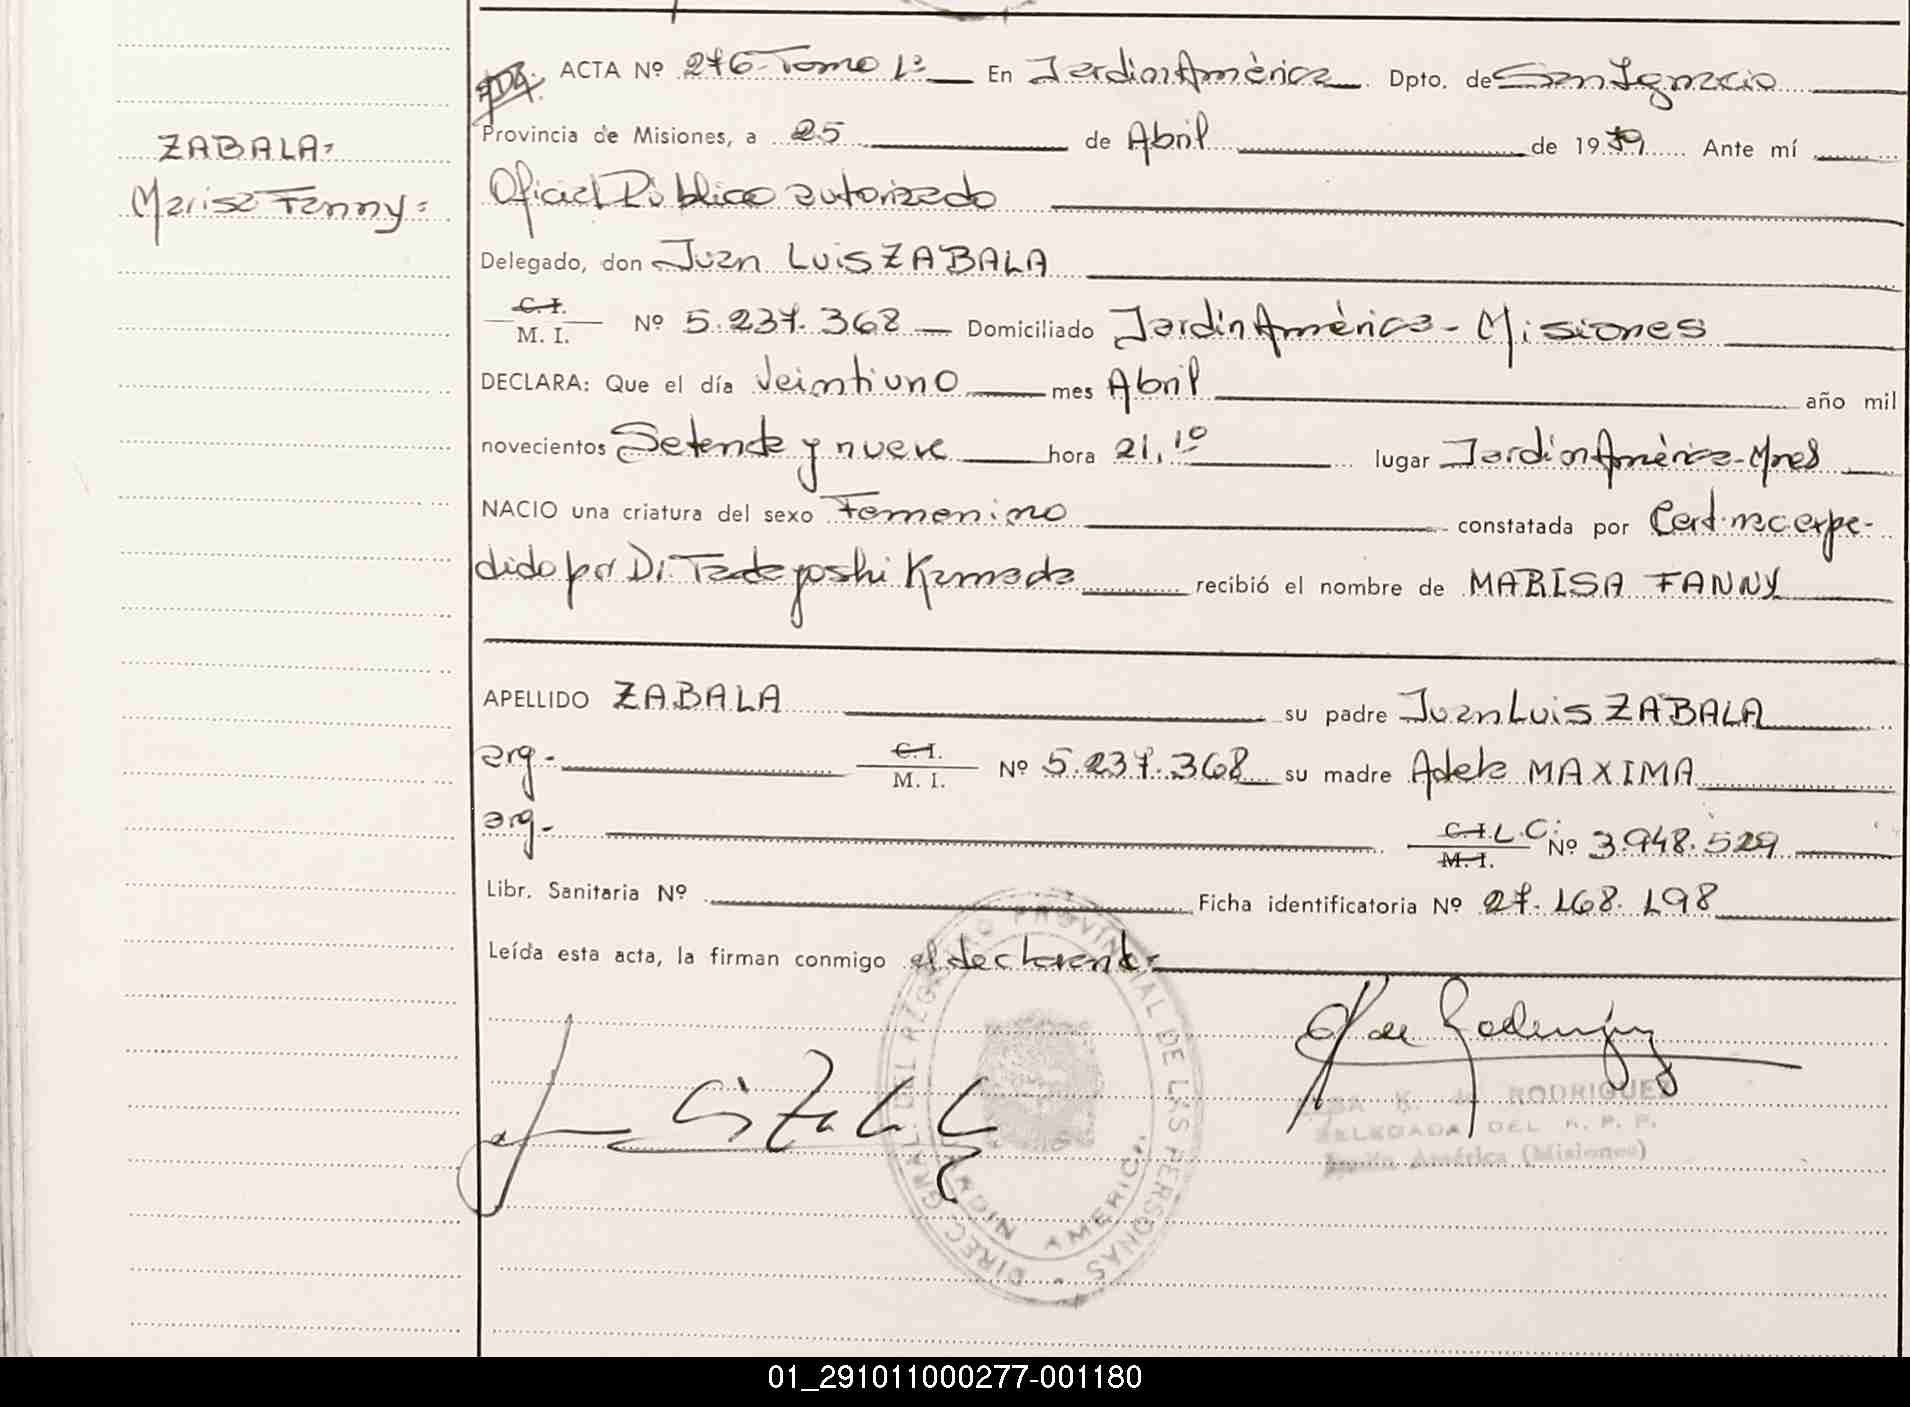 ZABALA=
Marisa Fanny=
ACTA Nº 276-Tomo 1º En Jardin América Dpto. de San Ignacio
Provincia de Misiones, a 25 de Abril de 1979 Ante mí
Oficial Público autorizado
Delegado, don Juan Luis ZABALA
C. I.
M. I. Nº 5.237.368 Domiciliado Jardin América- Misiones
DECLARA: Que el día Veintiuno mes Abril año mil
novecientos Setenta y nueve hora 21,10 lugar Jardin América-Mnes
NACIO una criatura del sexo Femenino constatada por Cert. nac. expe-
dido por Dr. Tadayoshi Kamada recibió el nombre de MARISA FANNY
APELLIDO ZABALA su padre Juan Luis ZABALA
arg- C. I.
M. I. Nº 5.237.368 su madre Adela MAXIMA
arg- C. I. L.C.
M. I. Nº 3.948.529
Libr. Sanitaria Nº Ficha identificatoria Nº 27.168.198
Leída esta acta, la firman conmigo el declarante
DIREC. GRAL. DEL REGISTRO PROVINCIAL DE LAS PERSONAS
AMERICA
K. de RODRIGUEZ
DELEGADA DEL R. P. P.
Jardín América (Misiones)
01_291011000277-001180